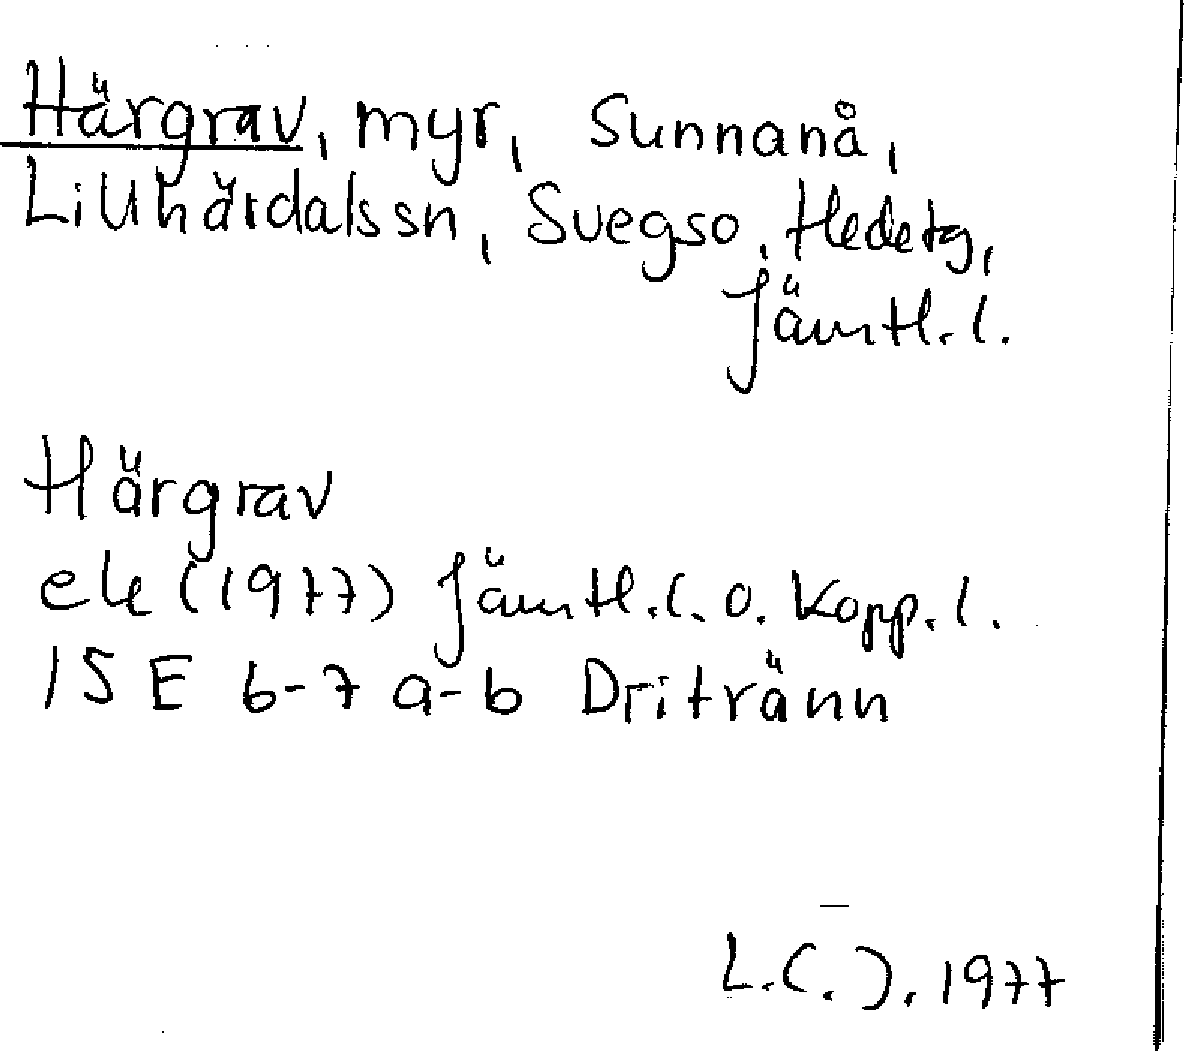 Härgrav, myr, Sunnanå,
Lillhärdalssn, Svegso, Hedetg,
Jämtl.l.
Härgrav
ek (1977) Jämtl.l. o. Kopp.l.
15 E 6-7 a-b Dritränn
L.C.J. 1977